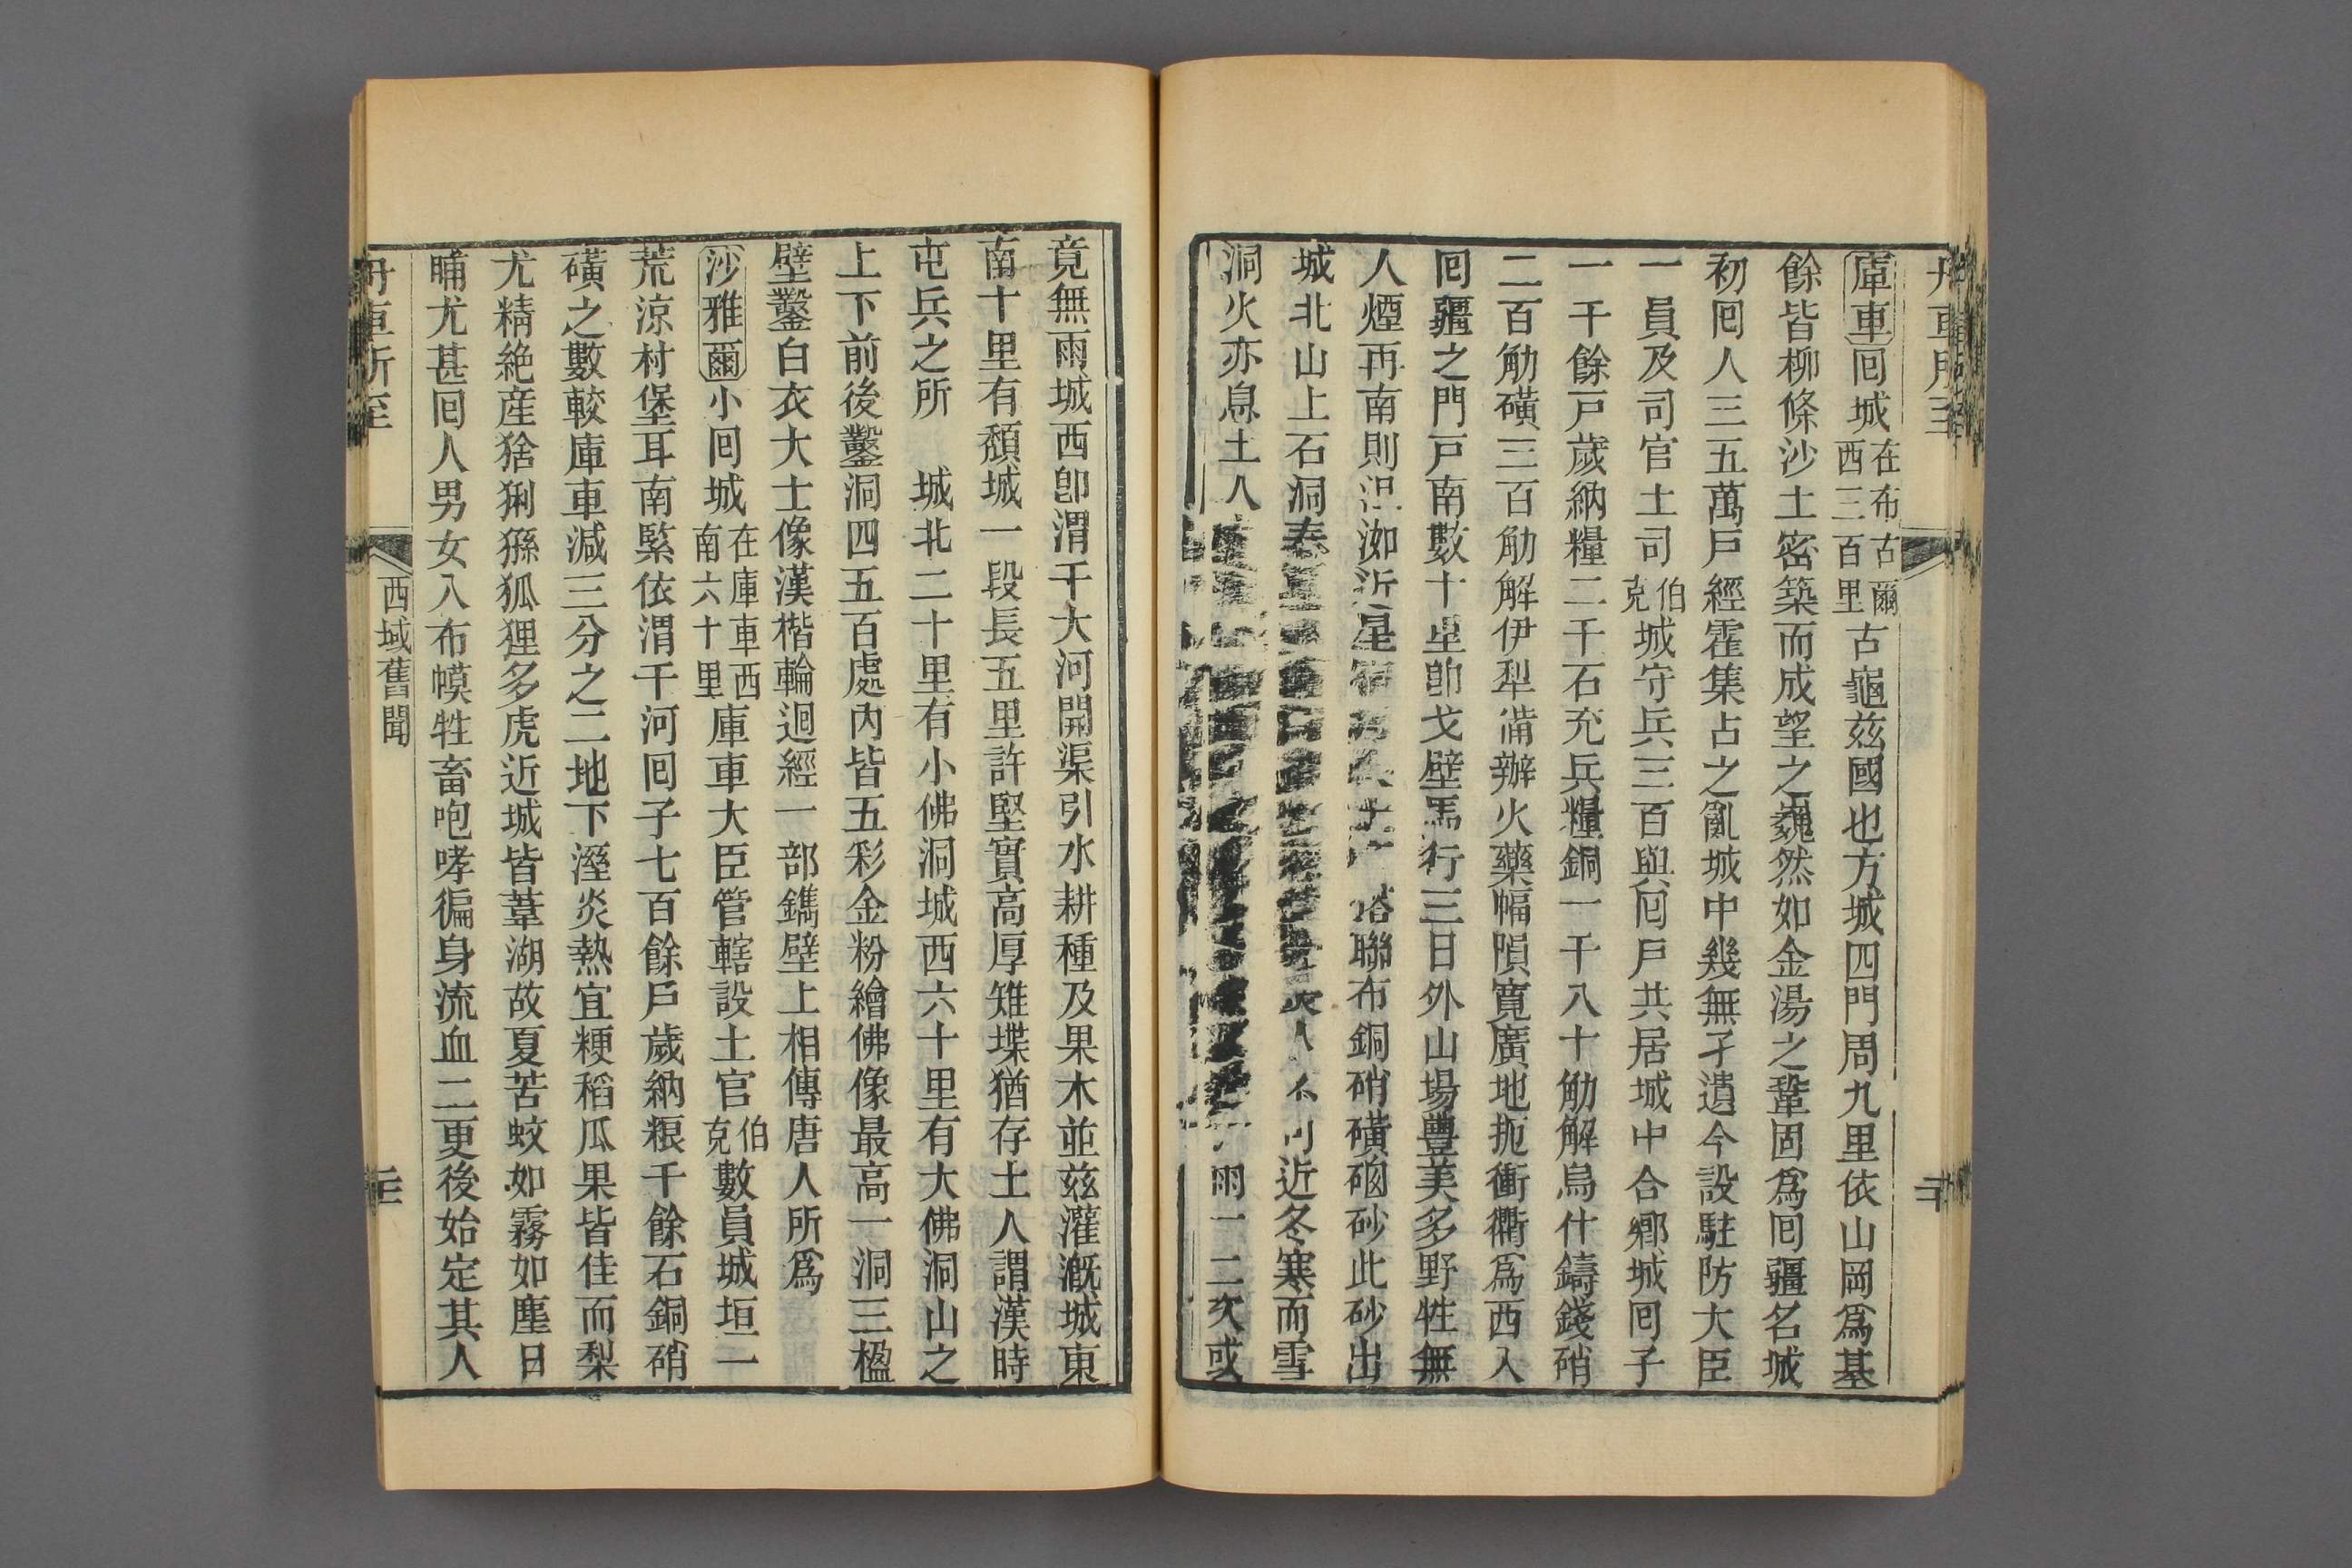 庫車囘城在布古爾西三百里古龜兹國也方城四門周九里依山岡爲基
餘皆柳條沙土密築而成望之巍然如金湯之鞏固爲囘疆名城
初囘人三五萬戸經霍集占之亂城中幾無孑遺今設駐防大臣
一員及司官土司伯克城守兵三百與囘戸共居城中合鄉城囘子
一千餘戸歲納糧二千石充兵糧銅一千八十觔解烏什鑄錢硝
二百觔磺三百觔解伊犁備辦火藥幅隕寛廣地扼衝衢爲西入
囘疆之門戸南數十里卽戈壁馬行三日外山場豐美多野牲無
人煙再南則沮洳近星聯布銅硝磺硇砂此砂出
城北山上石洞春夏人不可近冬寒而雪
洞火亦息土人雨一二次或
竟無雨城西卽渭干大河開渠引水耕種及果木並兹灌溉城東
南十里有頹城一段長五里許堅實高厚雉堞猶存土人謂漢時
屯兵之所 城北二十里有小佛洞城西六十里有大佛洞山之
上下前後鑿洞四五百處內皆五彩金粉繪佛像最高一洞三楹
壁鑿白衣大士像漢楷輪迴經一部鐫壁上相傳唐人所爲
沙雅爾小囘城在庫車西南六十里庫車大臣管轄設土官伯克數員城垣一
荒涼村堡耳南緊依渭干河囘子七百餘戸歲納粮千餘石銅硝
磺之數較庫車減三分之二地下溼炎熱宜粳稻瓜果皆佳而梨
尤精絶産猞猁猻狐狸多虎近城皆葦湖故夏苦蚊如霧如塵日
晡尤甚囘人男女入布幙牲畜咆哮徧身流血二更後始定其人
西域舊聞